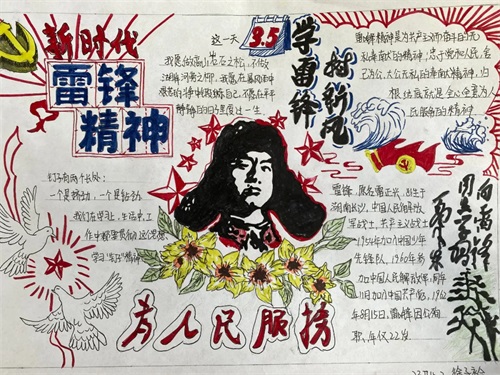 新时代
雷锋
精神
这一天
3.5
学雷锋
树新风
我愿做高山岩石之松，不做
湖岸河旁之柳。我愿在暴风雨中
艰苦的斗争中锻炼自己，不愿在平平
静静的日子里度过一生
雷锋精神是为共产主义而奋斗的无
私奉献的精神，忠于党和人民，舍
己为公、大公无私的奉献精神，归
根结底就是全心全意为人
民服务的精神
钉子有两个长处：
一个是挤劲，一个是钻劲。
我们在学习、生活中，
学习"钉子"精神
雷锋，原名雷正兴，出生于
湖南长沙，中国人民解放
军战士，共产主义战士，
1954年加入中国少年
先锋队，1960年参
加中国人民解放军，同年
11月加入中国共产党，1962
年8月15日，雷锋因公殉
职，年仅22岁
向雷锋
同志学习
毛泽东
为人民服务